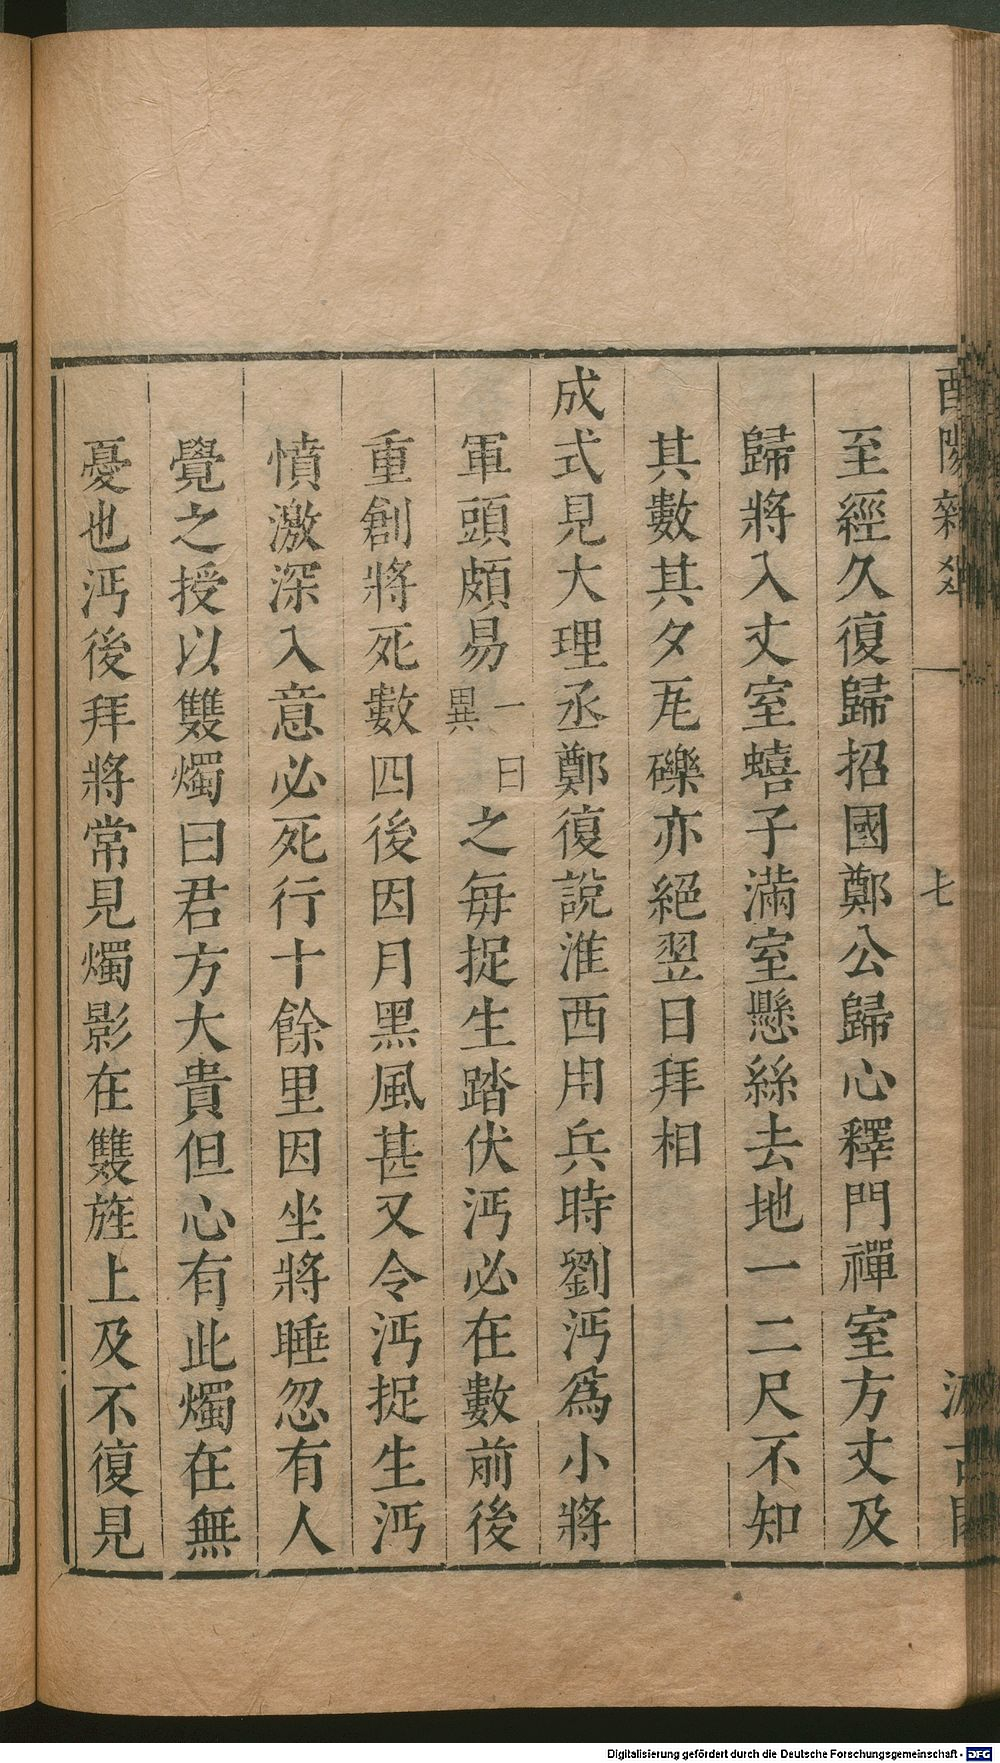 酉陽雜
七
至經久復歸招國鄭公歸心釋門禪室方丈及
歸將入丈室蟢子滿室懸絲去地一二尺不知
其數其夕瓦礫亦絕翌日拜相
成式見大理丞鄭復說淮西用兵時劉沔為小將
軍頭頗易一曰異之每捉生踏伏沔必在數前後
重創將死數四後因月黑風甚又令沔捉生沔
憤激深入意必死行十餘里因坐將睡忽有人
覺之授以雙燭曰君方大貴但心有此燭在無
憂也沔後拜將常見燭影在雙旌上及不復見
Digitalisierung gefördert durch die Deutsche Forschungsgemeinschaft - DFG